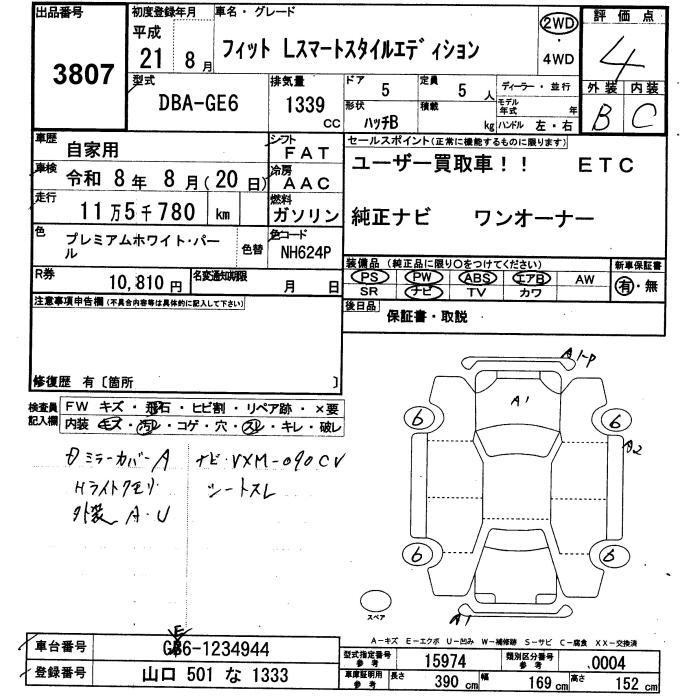 出品番号
3807
初度登録年月
平成
21年 8月
車名・グレード
フィット Lスマートスタイルエディション
2WD
・
4WD
評価点
4
外装 内装
B C
型式
DBA-GE6
排気量
1339
CC
ドア 5
定員 5 人
形状 ハッチB
積載 kg
ディーラー・並行
モデル年式 年
ハンドル 左・右
車歴
自家用
シフト
FAT
車検
令和 8年 8月(20日)
冷房
AAC
走行
11万5千780 km
燃料
ガソリン
色
プレミアムホワイト・パール
色替
色コード
NH624P
R券
10,810円
名変通知期限
月 日
セールスポイント(正常に機能するものに限ります)
ユーザー買取車!! ETC
純正ナビ ワンオーナー
装備品(純正品に限り○をつけてください)
PS PW ABS エアB AW
SR ナビ TV カワ
新車保証書
有・無
後日品
保証書・取説
注意事項申告欄(不具合内容等は具体的に記入して下さい)
修復歴 有〔箇所 〕
検査員記入欄
FW キズ・飛石・ヒビ割・リペア跡・×要
内装 キズ・汚れ・コゲ・穴・スレ・キレ・破レ
ミラーカバーA
ナビ・VXM-090CV
Hライトクモリ
シートスレ
外装 A・U
A1-P
A1
6
6
A2
6
6
A1
スペア
A-キズ E-エクボ U-凹み W-補修跡 S-サビ C-腐食 XX-交換済
車台番号
GE6-1234944
登録番号
山口 501 な 1333
型式指定番号
参考
15974
類別区分番号
参考
0004
車庫証明用
参考
長さ 390 cm
幅 169 cm
高さ 152 cm